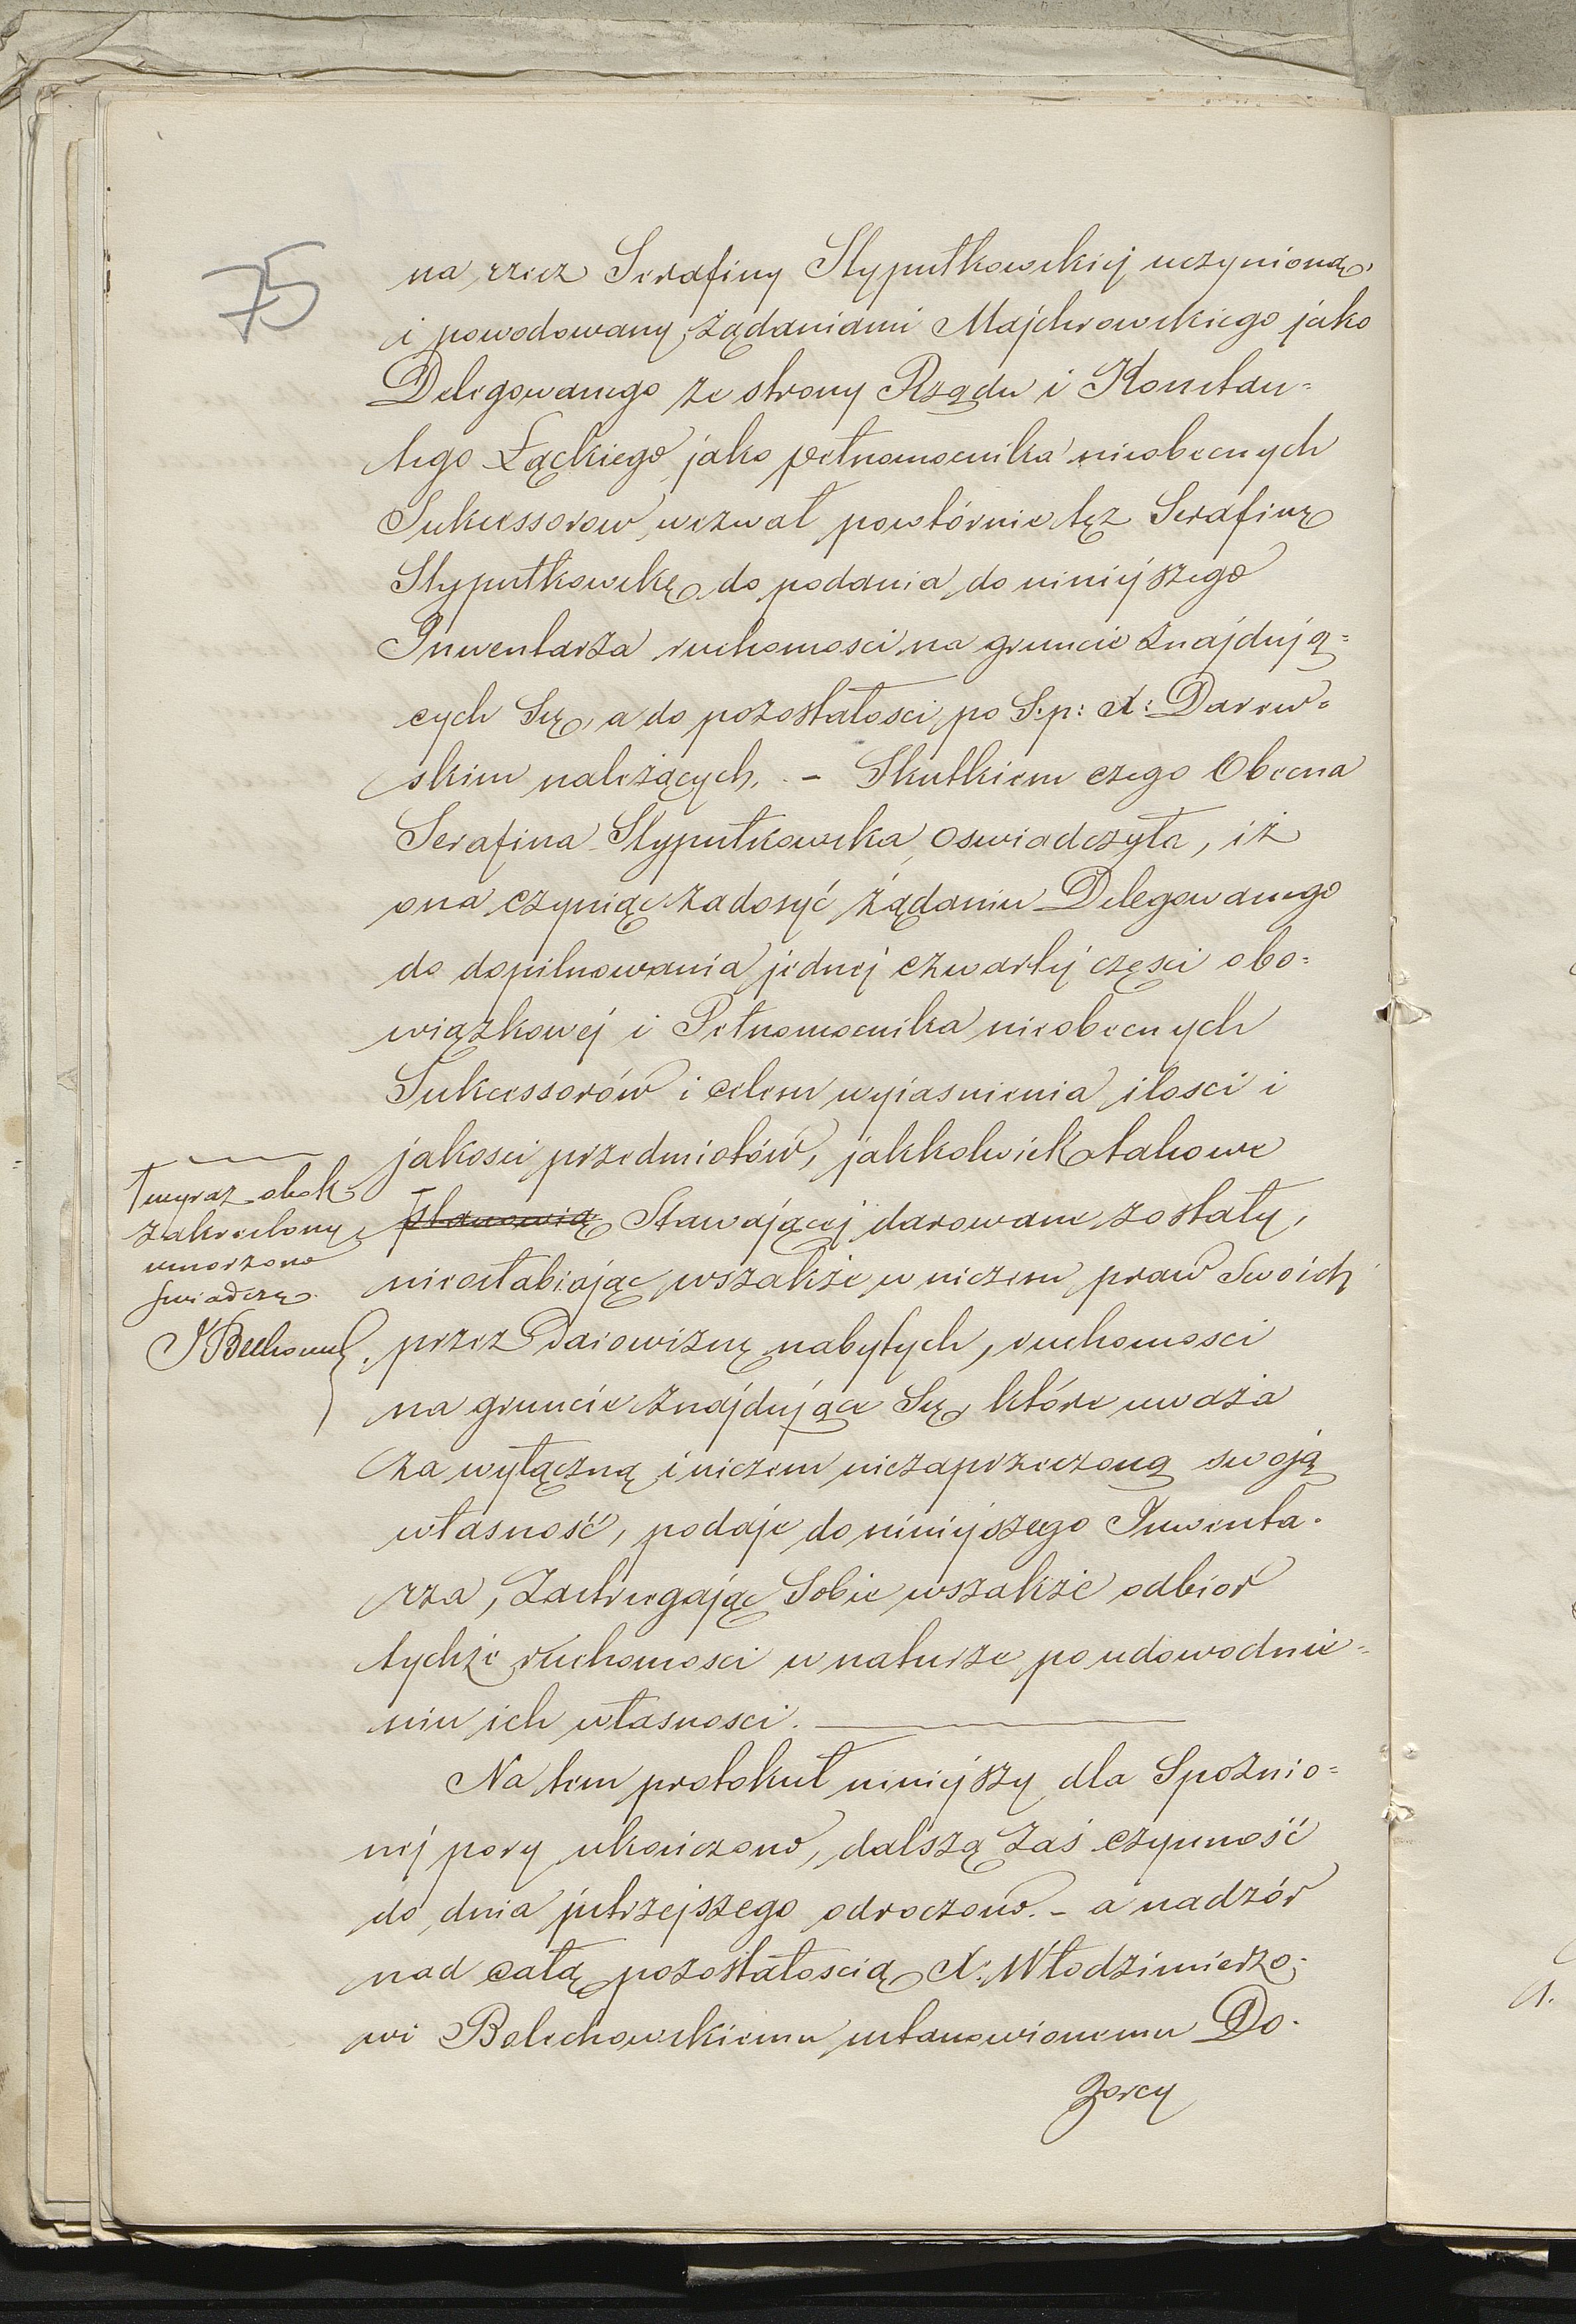 75
na rzecz Serafiny Stypułkowskiej uczynioną,
i powodowany żądaniami Majchrowskiego jako
Delegowanego ze strony Rządu i Konstan=
tego Łąckiego jako pełnomocnika nieobecnych
Sukcessorow, wezwał powtórnie tęz Serafinę
Stypułkowskę do podania do niniejszego
Inwentarza ruchomosci na gruncie znajdują=
cych Się, a do pozostałosci po S.p: X: Darew=
skim należących. - Skutkiem czego Obecna
Serafina Stypułkowska, oswiadczyła, iż
ona czyniąc zadosyć żądaniu Delegowanego
do dopilnowania jednej czwartej częsci obo=
wiązkowej i Pełnomocnika nieobecnych
Sukcessorów i celem wyiasnienia ilosci i
jakosci przedmiotów, jakkolwiek takowe
stanowią Stawającej darowane zostały,
nieosłabiając wszakże w niczem praw Swoich
przez Darowiznę nabytych, ruchomosci
na gruncie znajdujące Się, które uważa
za wyłączną i niczem niezaprzeczoną swoją
własność, podaje do niniejszego Inwenta-
rza, Zastrzegając Sobie wszakże odbior
tychże ruchomosci w naturze po udowodnie=
niu ich własnosci.
Na tem protokuł niniejszy dla Spoznio=
nej pory ukończono, dalszą Zaś czynność
do dnia jutrzejszego odroczono. - a nadzór
nad całą pozostałoscią X. Włodzimierzo-
wi Bolechowskiemu ustanowionemu Do-
zorcy
wyraz obok
zakreslony
umorzono
swiadczę